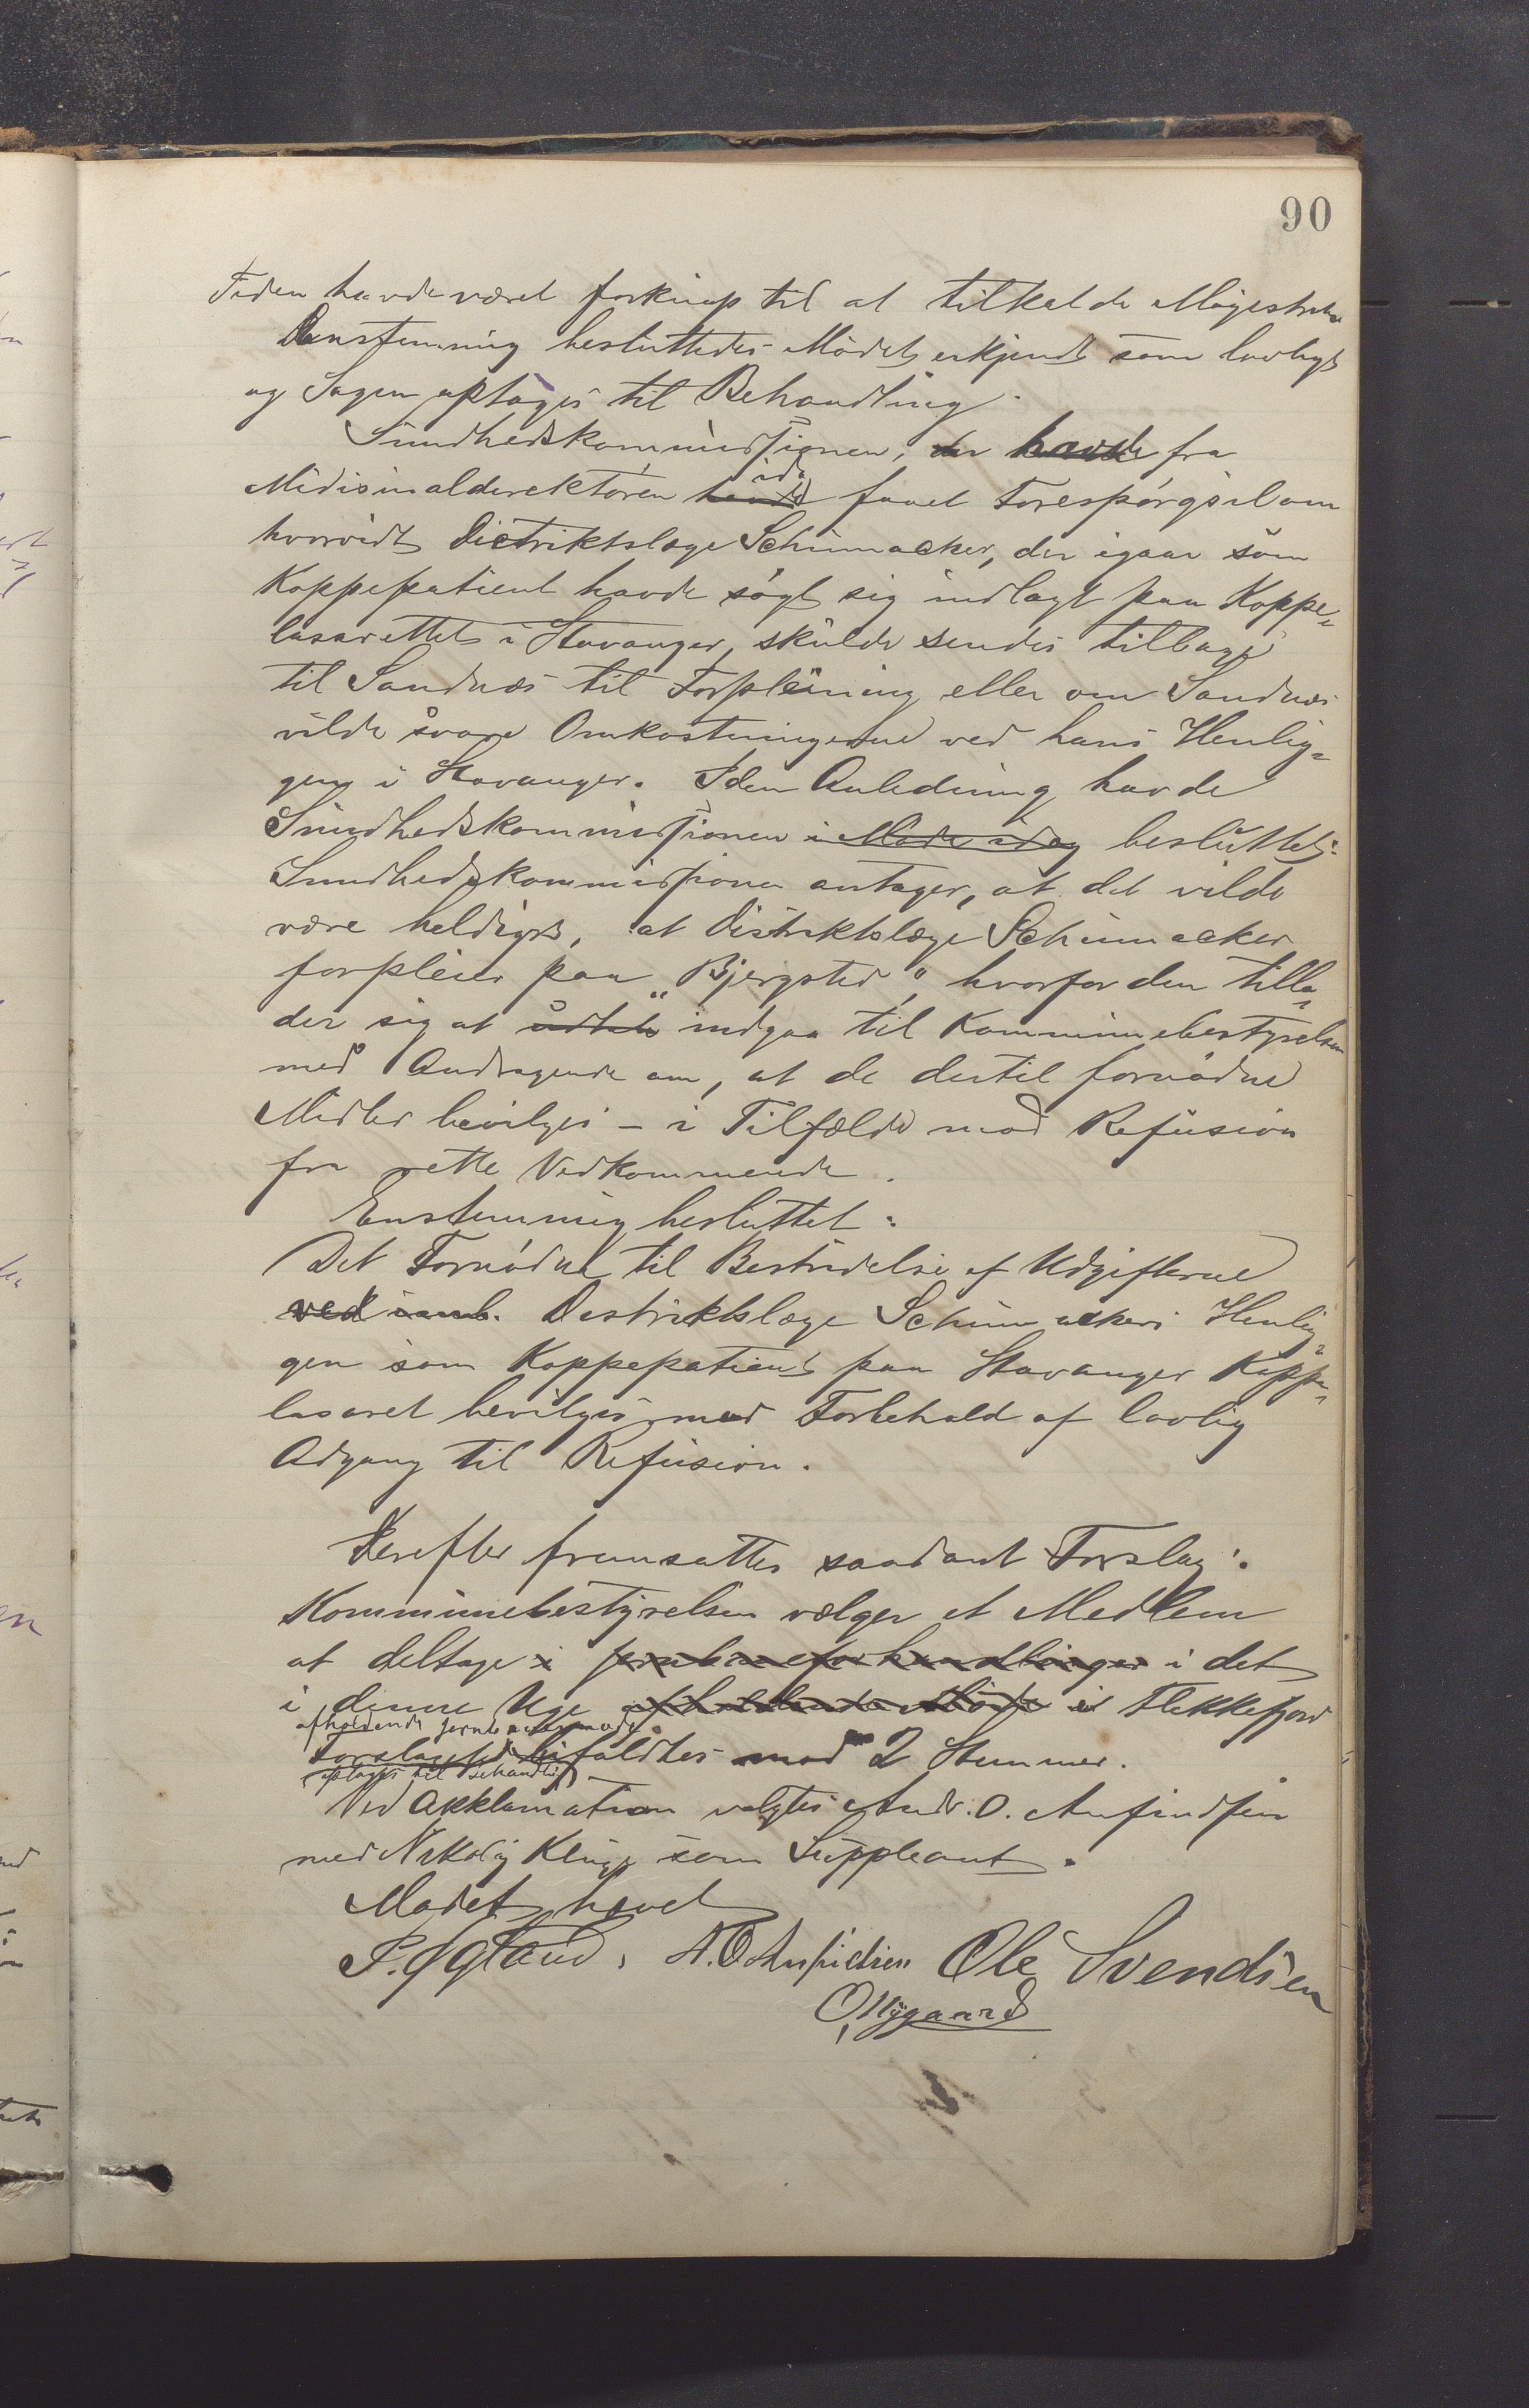 90
Tiden havde været forknap til at tilkalde Magistraten
Enstemmig besluttedes Mödet erkjendt som lovligt
og Sagen optages til Behandling.
Sundhedskommissionen, der havde fra
Medisinaldirektören havde faaet Forespørgsel om
hvorvidt Distriktslæge Schumacker, der igaar som
Koppepatient havde søgt sig indlagt paa Koppe-
lasarettet i Stavanger, skulde sendes tilbage
til Sandnæs til Forpleining eller om Sandnæs
vilde svare Omkostningerne ved hans Henlig-
gen i Stavanger. I den Anledning havde
Sundhedskommissionen i Møde idag besluttet:
Sundhedskommissionen antager, at det vilde
være heldigst, at Distriktslæge Schumacker
forpleies paa "Bjergsted", hvorfor den tilla-
der sig at udtale indgaa til Kommunebestyrelsen
med Andragende om, at de dertil fornødne
Midler bevilges – i Tilfælde mod Refusion
fra rette Vedkommende.
Enstemmig besluttet:
Det Fornødne til Bestridelse af Udgifterne
ved Distriktslæge Schumackers Henlig-
gen som Koppepatient paa Stavanger Koppe-
lasaret bevilges med Forbehold af lovlig
Adgang til Refusion.
Derefter fremsattes saadant Forslag:
Kommunebestyrelsen vælger et Medlem
at deltage i jernbaneforhandlinger i det
i denne Uge afholdende Møde i Flekkefjord
afholdende jernbanemøde.
Forslaget bifaldtes mod 2 Stemmer.
optages til behandling
Ved Akklamation valgtes Andr. O. Anfindsen
med Nikolaj Kluge som Suppleant.
Mødet hævet
P. Ogland, A. O. Anfindsen Ole Svendsen
O. Nygaard